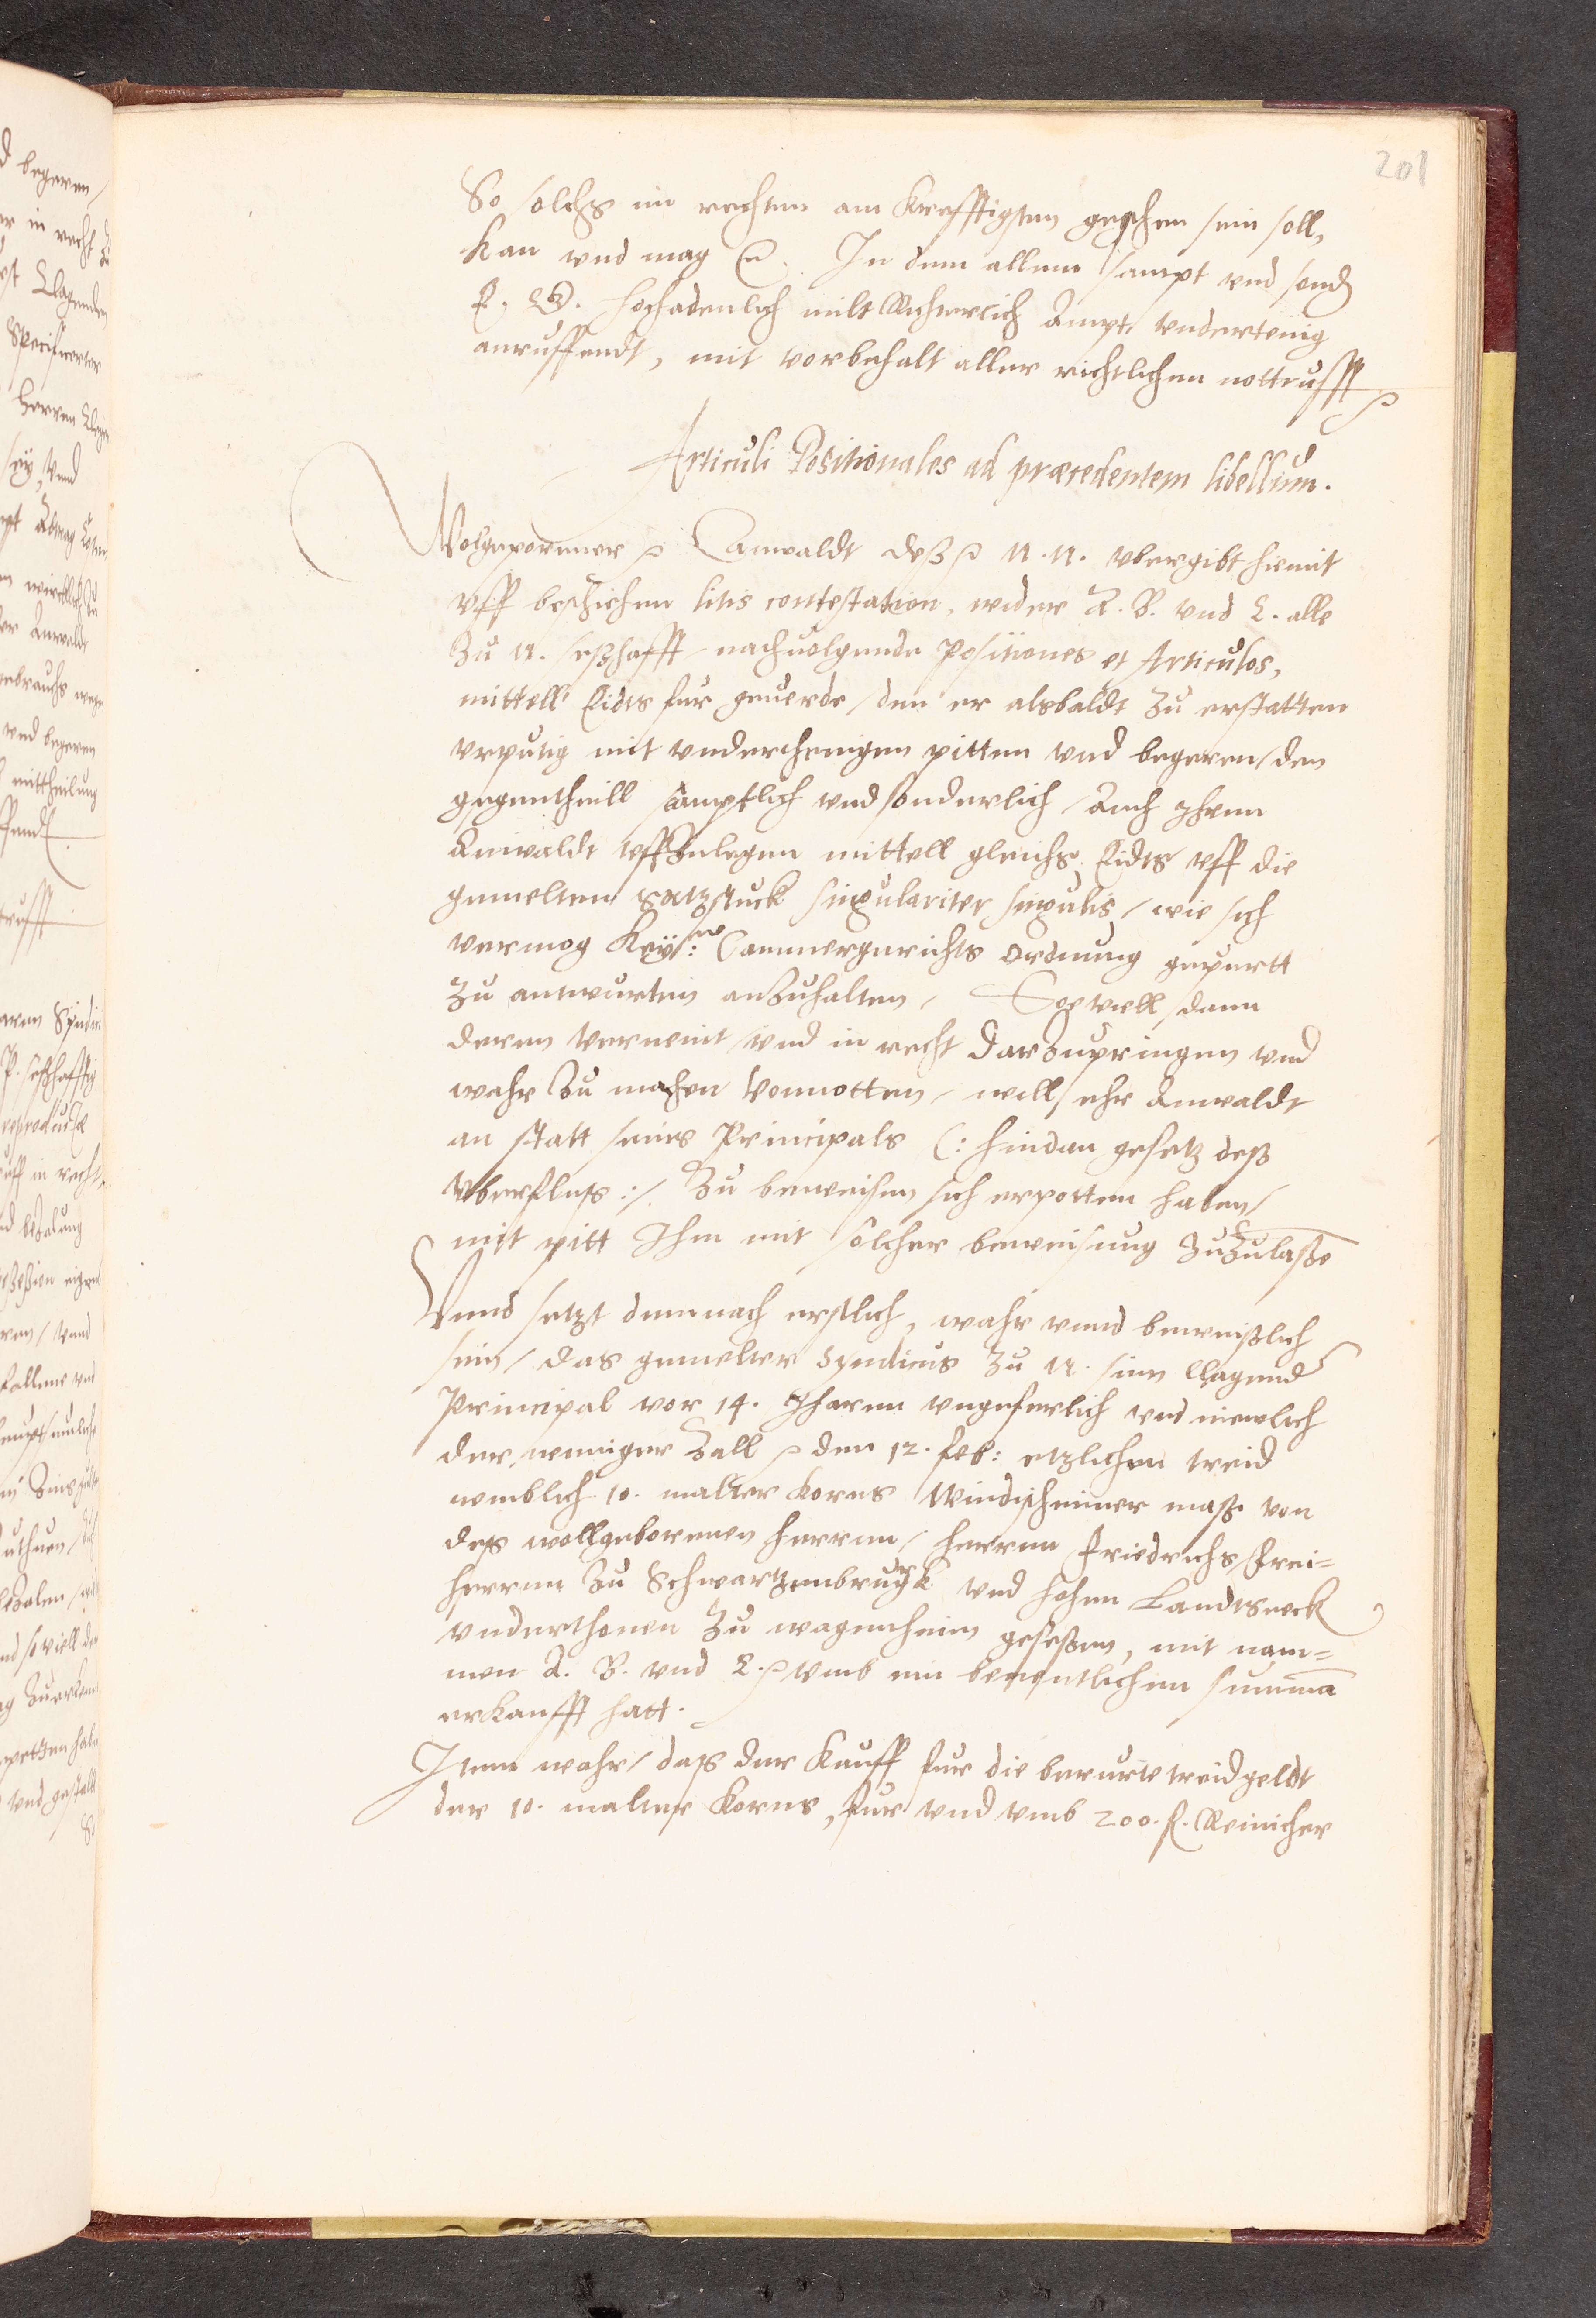 201
So solchs im rechten am krefftigsten geschehen sein soll,
kan und mag etc. In dem allem sampt und sonder
E. G. hochadenlich milt Richterlich Ampt, undertenig
anruffendt, mit vorbehalt aller richtlichen nottrufft
Articuli Positionales ad præcedentem libellum.
Wolgeporenner etc. Anwaldt deß etc. N. N. ubergibt hiemit
uff beschehen litis contestation, wider A. B. und C. alle
zu N. seßhafft nachuolgende Positiones et Articulos,
mittell Eidts fur geuerde, den er alsbaldt zu erstatten
urputig mit underthenigem pitten und begeren, den
gegentheill samptlich und sonderlich, Auch Ihren
Anwaldt uffzulegen mittell gleichs Eidts uff die
gemelten satzstuck singulariter singulis, wie sich
vermog Keys: Cammergerichts ordnung gepurtt
zu antwurten anzuhalten, Soe viell dann
deren verneint und in recht darzupringen und
wahr zu machen vonnotten, will ehr Anwaldt
an statt seines Principals (: hindan gesetz deß
uberfluß :/ zu beweisen sich erpotten haben,
mit pitt Ihm mit solcher beweisung zuzulaße
Unnd setzt demnach erstlich, wahr unnd beweißlich
sein, das gemelter Syndicus zu N. sein Clagender
Principal vor 14. Jharen ungeferlich und nemlich
der weniger zall etc. den 12. feb: etzlichen treid
nemblich 10. malter korns Windsheimer maß von
deß wollgebornen herren, herren Friedrichs, Frei=
herren zu Schwartzenbrugk und hohen Landtsperck
underthonen zu wagenheim geseßen, mit nam=
men A. B. und C. etc. umb ein benentlichen summa
erkaufft hatt.
Item wahr, daß der kauff fur die berurte treidgeldt
der 10. malter korns, fur und umb 200. fl. Reinischer